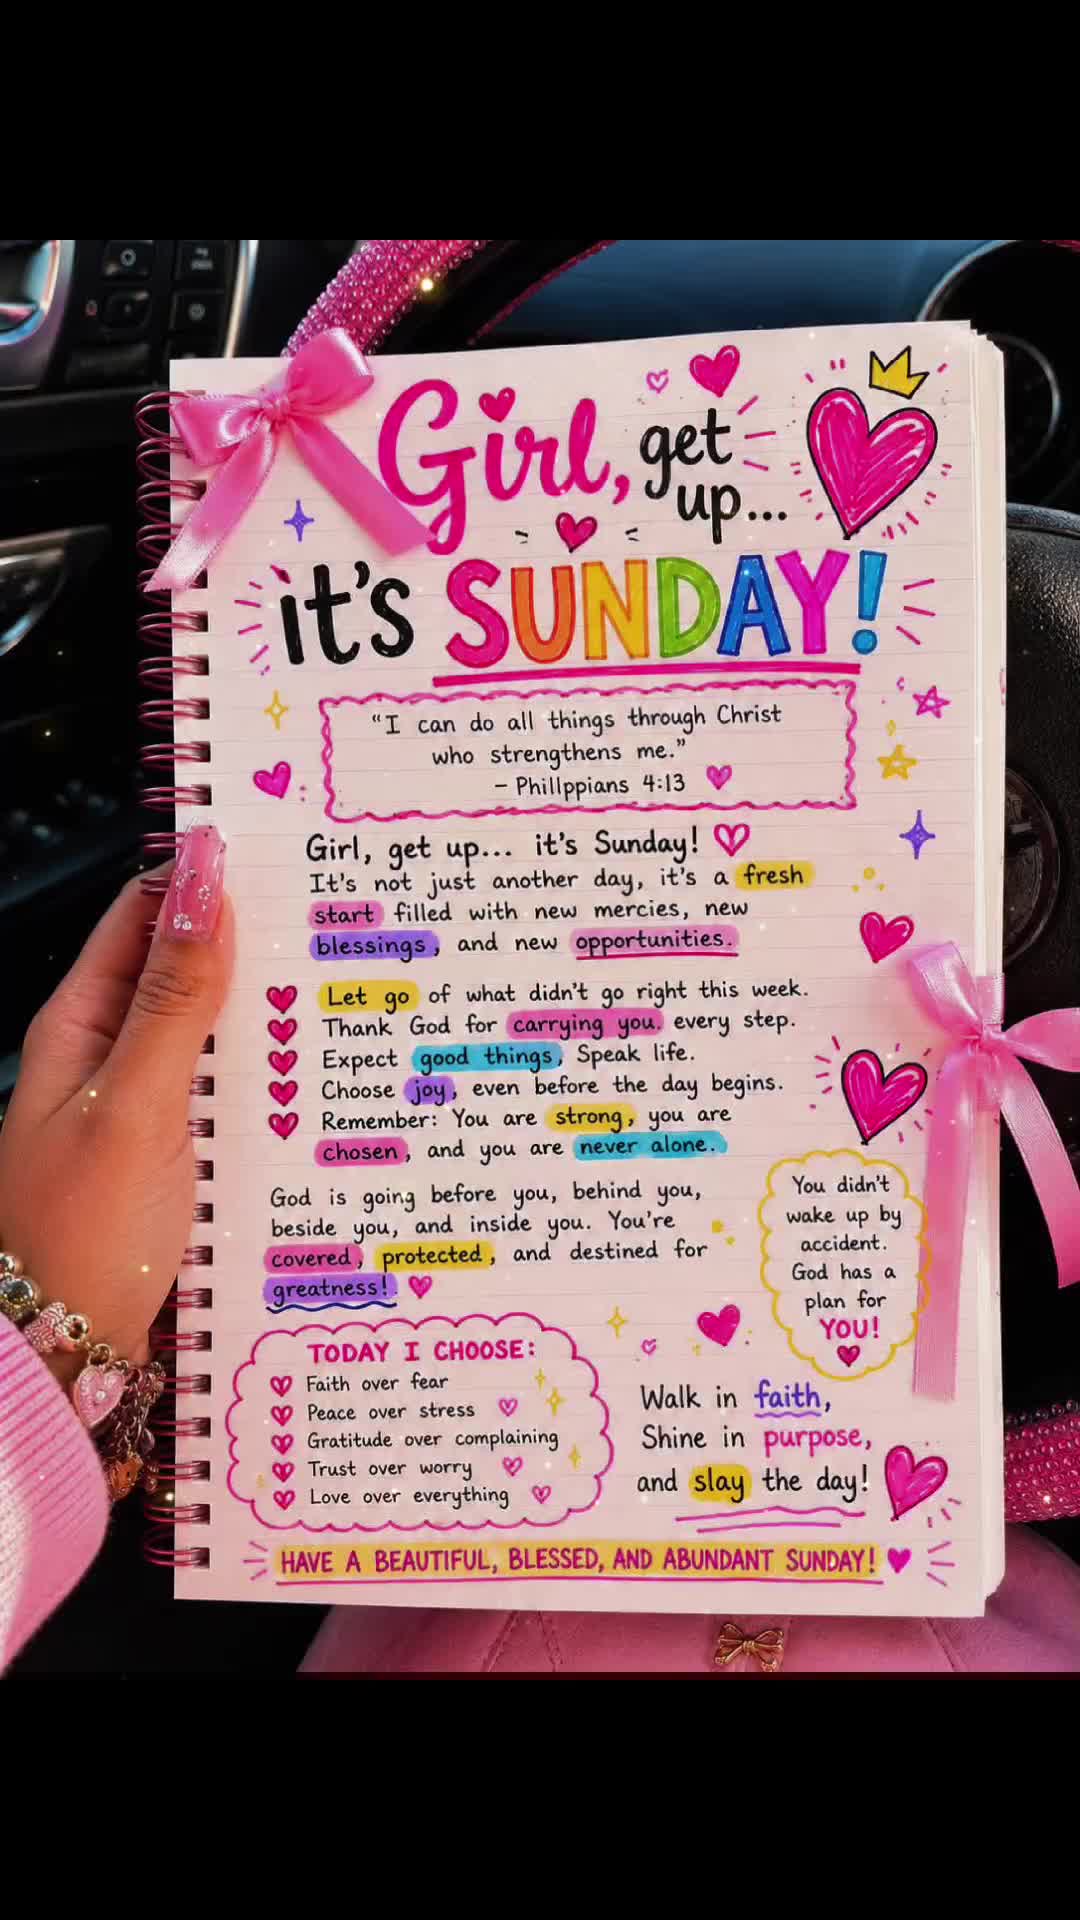 Girl, get
up...
it's SUNDAY!
"I can do all things through Christ
who strengthens me."
- Philppians 4:13
Girl, get up... it's Sunday!
It's not just another day, it's a fresh
start filled with new mercies, new
blessings, and new opportunities.
Let go of what didn't go right this week.
Thank God for carrying you. every step.
Expect good things, Speak life.
Choose joy, even before the day begins.
Remember: You are strong, you are
chosen, and you are never alone.
God is going before you, behind you,
beside you, and inside you. You're
covered, protected, and destined for
greatness!
You didn't
wake up by
accident.
God has a
plan for
YOU!
TODAY I CHOOSE:
Faith over fear
Peace over stress
Gratitude over complaining
Trust over worry
Love over everything
Walk in faith,
Shine in purpose,
and slay the day!
HAVE A BEAUTIFUL, BLESSED, AND ABUNDANT SUNDAY!